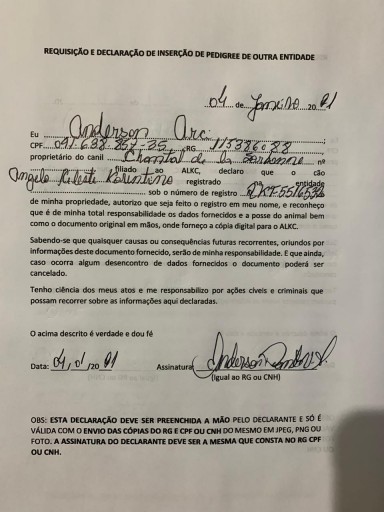 REQUISIÇÃO E DECLARAÇÃO DE INSERÇÃO DE PEDIGREE DE OUTRA ENTIDADE
04 de Janeiro 20 21
Eu Anderson
CPF RG
proprietário do canil Chantal de la Sorbonne nº
filiado ao ALKC, declaro que o cão
Angelo registrado na entidade
sob o número de registro
de minha propriedade, autorizo que seja feito o registro em meu nome, e reconheço
que é de minha total responsabilidade os dados fornecidos e a posse do animal bem
como o documento original em mãos, onde forneço a cópia digital para o ALKC.
Sabendo-se que quaisquer causas ou consequências futuras recorrentes, oriundos por
informações deste documento fornecido, serão de minha responsabilidade. E que ainda,
caso ocorra algum desencontro de dados fornecidos o documento poderá ser
cancelado.
Tenho ciência dos meus atos e me responsabilizo por ações cíveis e criminais que
possam recorrer sobre as informações aqui declaradas.
O acima descrito é verdade e dou fé
Data: 04/01/20 21 Assinatura
(Igual ao RG ou CNH)
OBS: ESTA DECLARAÇÃO DEVE SER PREENCHIDA A MÃO PELO DECLARANTE E SÓ É
VÁLIDA COM O ENVIO DAS CÓPIAS DO RG E CPF OU CNH DO MESMO EM JPEG, PNG OU
FOTO. A ASSINATURA DO DECLARANTE DEVE SER A MESMA QUE CONSTA NO RG CPF
OU CNH.